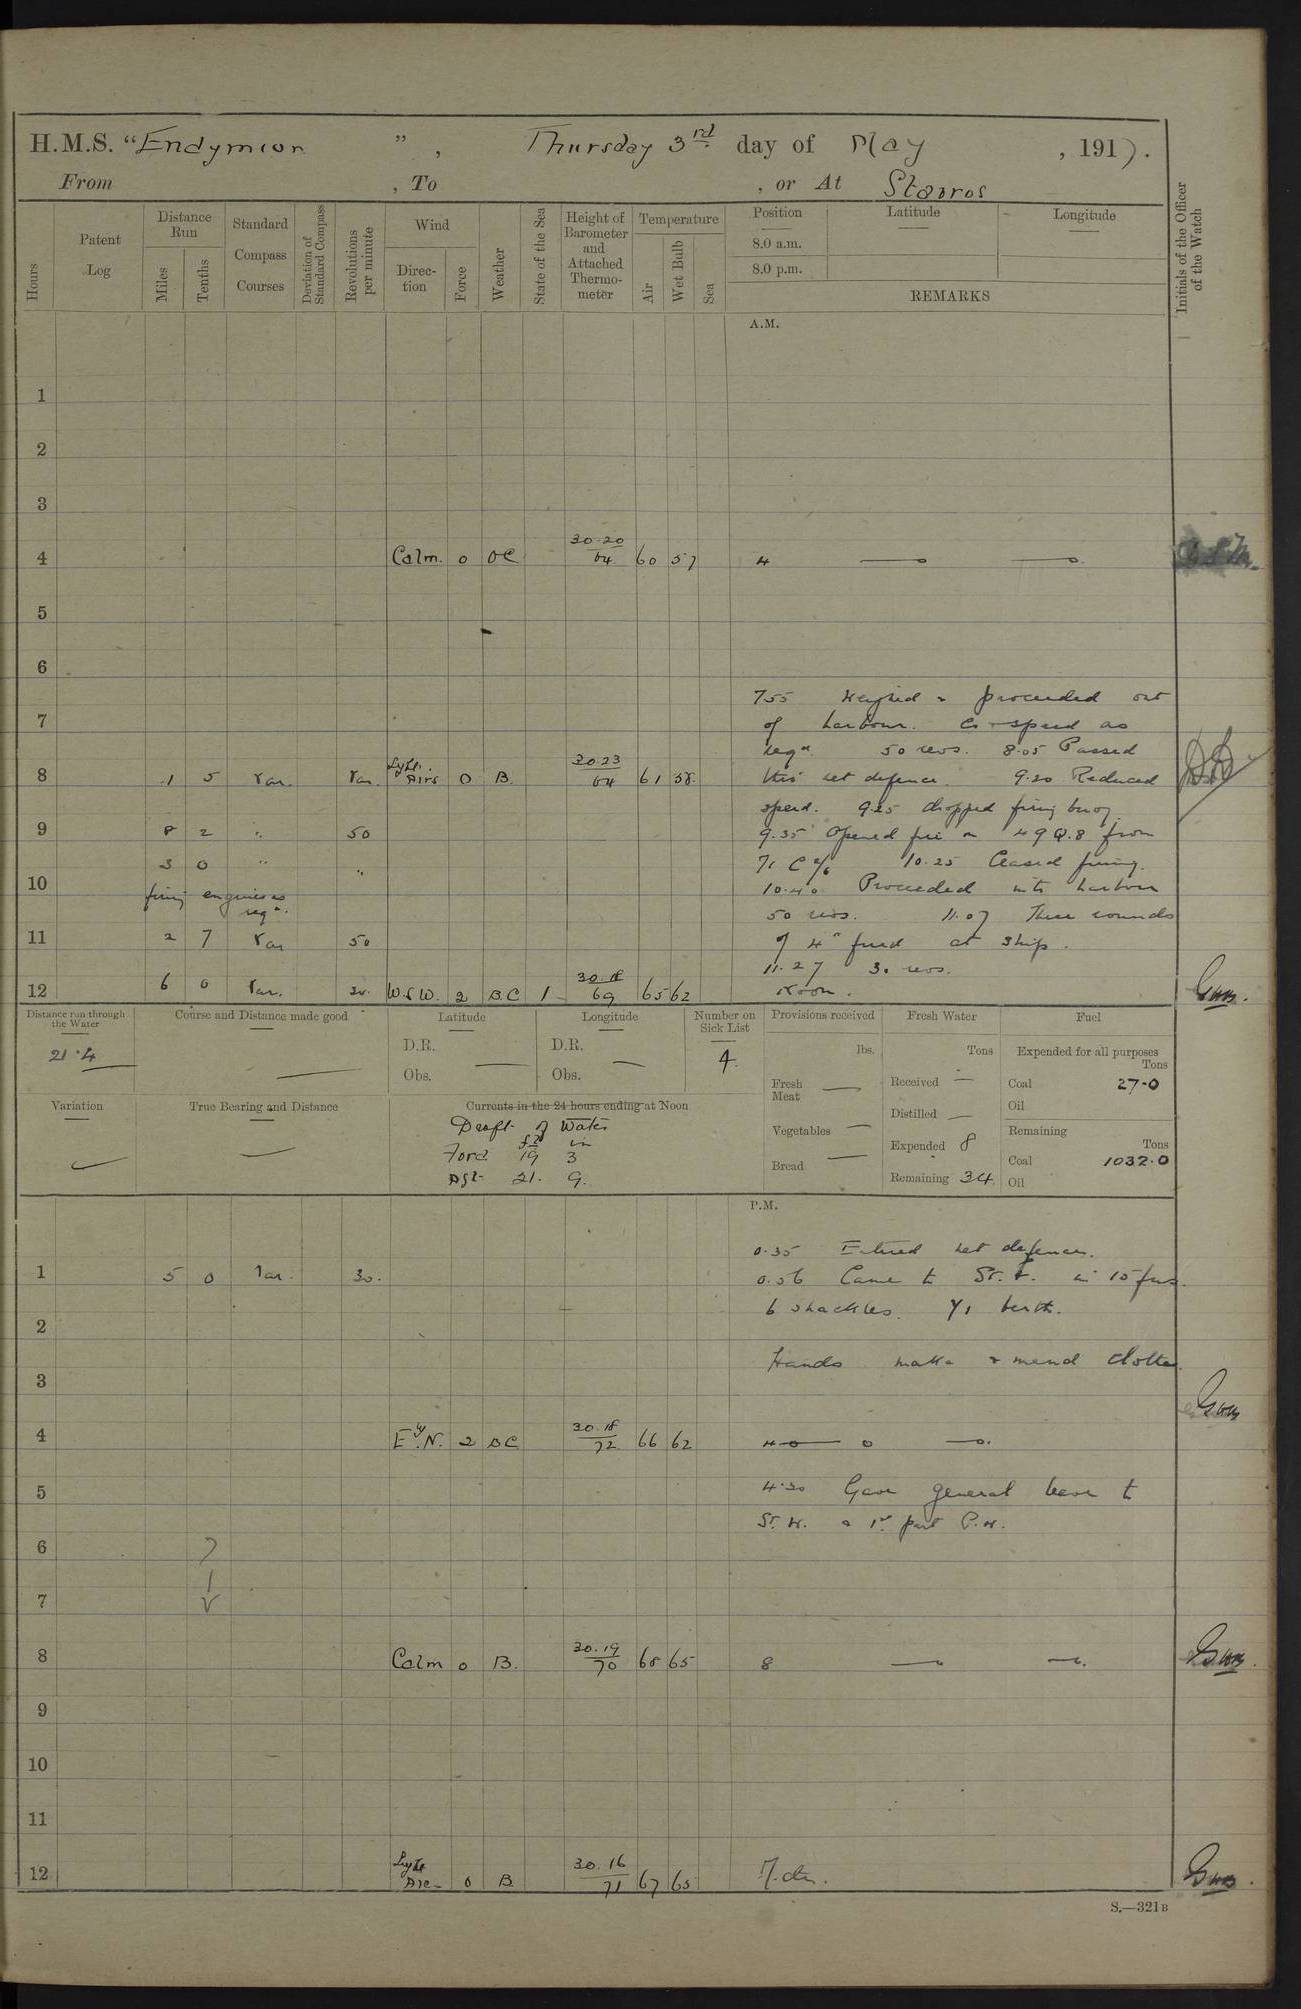 H.M.S. "Endymion", Thursday 3rd day of May, 1917.
From , To , or At Stavros
Hours
Patent Log
Distance Run
Miles
Tenths
Standard Compass Courses
Deviation of Standard Compass
Revolutions per minute
Wind
Direction
Force
Weather
State of the Sea
Height of Barometer and Attached Thermometer
Temperature
Air
Wet Bulb
Sea
Position Latitude Longitude
8.0 a.m.
8.0 p.m.
REMARKS
Initials of the Officer of the Watch
A.M.
1
2
3
4 Calm. 0 OC 30.20/64 60 57 4
5
6
755 Weighed & proceeded out
7 of harbour. Co & speed as
reqd. 50 revs. 8.05 Passed
8 1 5 Var. Var. Lyht. Airs 0 B. 30.23/64 61 58 thro' net defence. 9.20 Reduced
speed. 9.25 dropped firing buoy.
9 8 2 " 50 9.35 Opened fire on 49 Q.8 from
3 0 " " 71 C 10.25 Ceased firing.
10 10.40 Proceeded into harbour
firing engines as reqd. 50 revs. 11.07 Three rounds
11 2 7 Var 50 of 4" fired at ship.
11.27 30 revs.
12 6 0 Var. 30. W.S.W. 2 B.C 1 30.18/69 65 62 Noon.
Distance run through the Water
21.4
Course and Distance made good
Latitude
D.R.
Obs.
Longitude
D.R.
Obs.
Number on Sick List
4
Provisions received
lbs.
Fresh Meat
Vegetables
Bread
Fresh Water
Tons
Received
Distilled
Expended 8
Remaining 34
Fuel
Expended for all purposes
Tons
Coal 27.0
Oil
Remaining
Tons
Coal 1032.0
Oil
Variation
True Bearing and Distance
Currents in the 24 hours ending at Noon
Draft of Water
ft in
Ford 19 3
Aft 21. 9.
P.M.
0.35 Entered net defence.
1 5 0 Var. 30. 0.56 Came to St. in 15 fms.
6 shackles. Y1 berth.
2
Hands make & mend clothes
3
4 E.N. 2 BC 30.18/72 66 62 4
5 4.30 Gave general leave to
St. W. & 1st part P.W.
6
7
8 Calm 0 B. 30.19/70 68 65 8
9
10
11
12 Lyht Airs 0 B 30.16/71 67 65
S.—321B